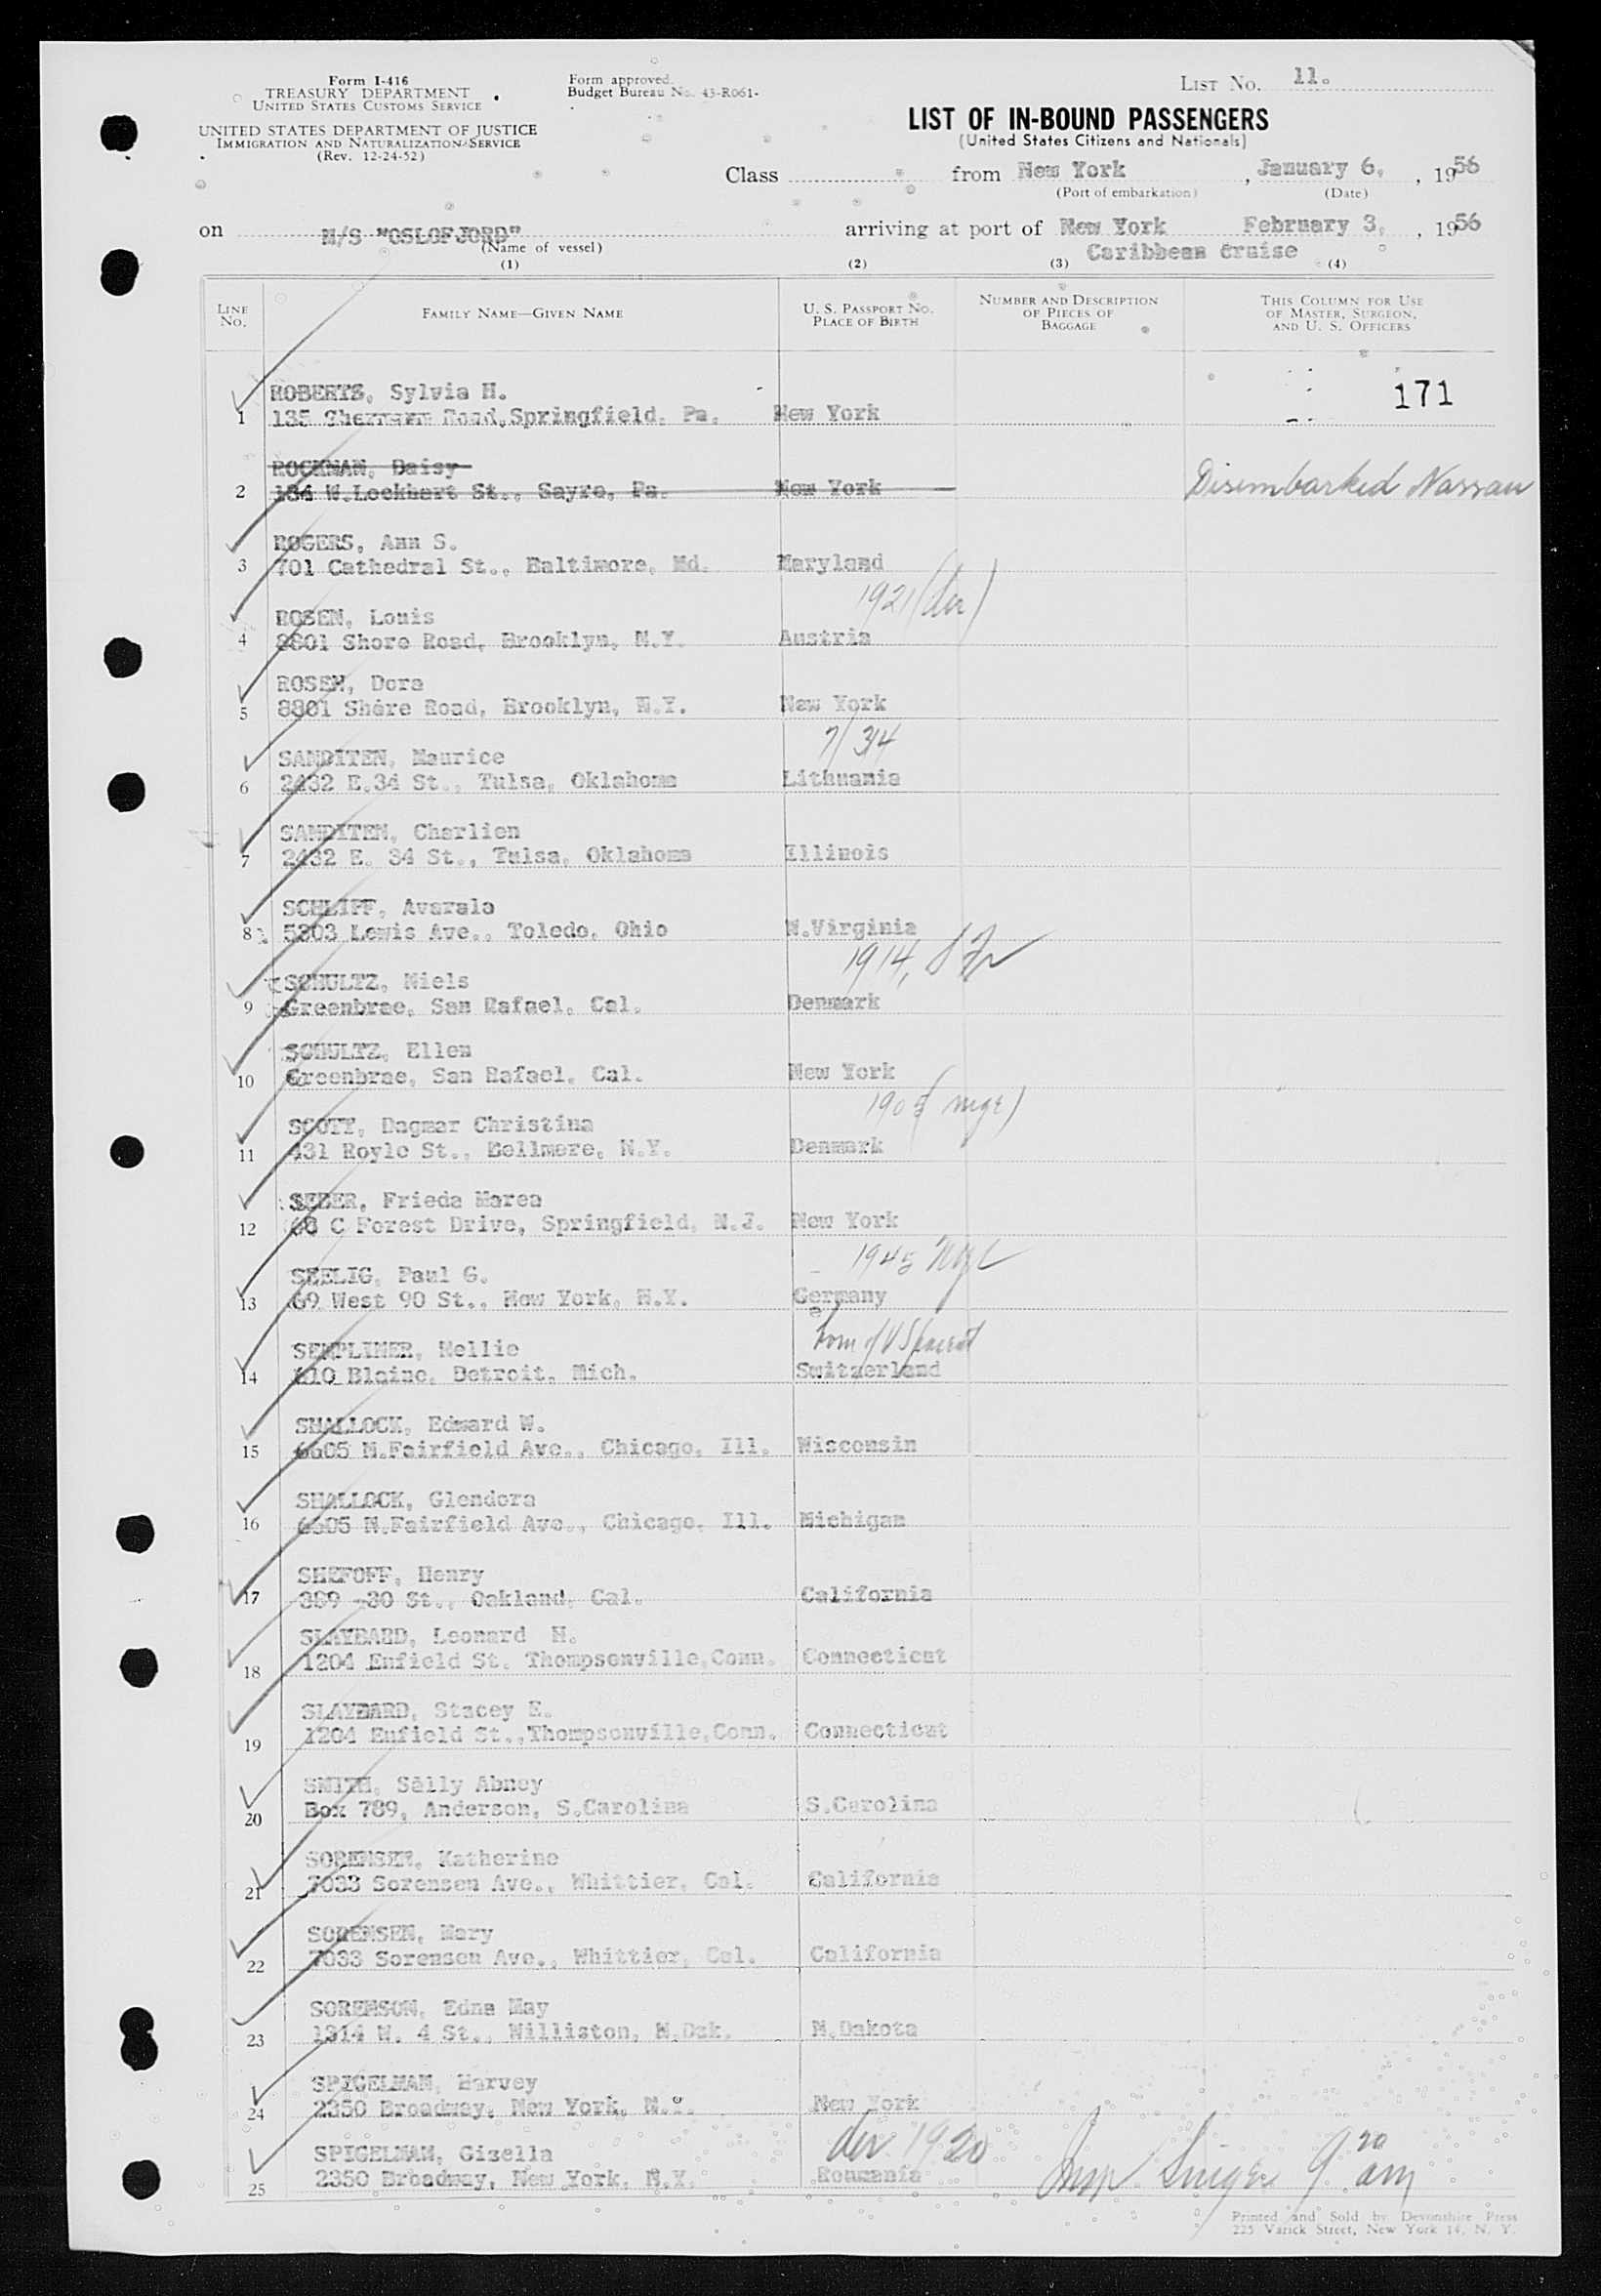 Form I-416
TREASURY DEPARTMENT
UNITED STATES CUSTOMS SERVICE
UNITED STATES DEPARTMENT OF JUSTICE
IMMIGRATION AND NATURALIZATION SERVICE
(Rev. 12-24-52)
Form approved.
Budget Bureau No. 43-R061-
LIST NO. 11.
LIST OF IN-BOUND PASSENGERS
(United States Citizens and Nationals)
Class from New York, January 6, , 1956
(Port of embarkation) (Date)
on M/S "OSLOFJORD" arriving at port of New York February 3, , 1956
(Name of vessel) Caribbean Cruise
(1) (2) (3) (4)
LINE NO. FAMILY NAME—GIVEN NAME U. S. PASSPORT NO. PLACE OF BIRTH NUMBER AND DESCRIPTION OF PIECES OF BAGGAGE THIS COLUMN FOR USE OF MASTER, SURGEON, AND U. S. OFFICERS
171
ROBERTS, Sylvia H.
1 135 Road, Springfield, Pa. New York
ROCKMAN, Daisy
2 134 W.Lockhart St., Sayre, Pa. New York Disembarked Nassau
ROGERS, Ann S.
3 701 Cathedral St., Baltimore, Md. Maryland
1921 (der)
ROSEN, Louis
4 8801 Shore Road, Brooklyn, N.Y. Austria
ROSEN, Dora
5 8801 Shore Road, Brooklyn, N.Y. New York
7/34
SANDITEN, Maurice
6 2432 E.34 St., Tulsa, Oklahoma Lithuania
SANDITEN, Charlien
7 2432 E. 34 St., Tulsa, Oklahoma Illinois
SCHLIFF, Avarala
8 5303 Lewis Ave., Toledo, Ohio W.Virginia
1914,
SCHULTZ, Niels
9 Greenbrae, San Rafael, Cal. Denmark
SCHULTZ, Ellen
10 Greenbrae, San Rafael, Cal. New York
SCOTT, Dagmar Christina
11 431 Royle St., Bellmore, N.Y. Denmark
SEBER, Frieda Marea
12 68 C Forest Drive, Springfield, N.J. New York
1945
SEELIG, Paul G.
13 69 West 90 St., New York, N.Y. Germany
born of US parent
SEMPLINER, Nellie
14 610 Blaine, Detroit, Mich. Switzerland
SHALLOCK, Edward W.
15 6605 N.Fairfield Ave., Chicago, Ill. Wisconsin
SHALLOCK, Glendora
16 6605 N.Fairfield Ave., Chicago, Ill. Michigan
SHEFOFF, Henry
17 389 -30 St., Oakland, Cal. California
SLAYBARD, Leonard H.
18 1204 Enfield St. Thompsonville,Conn. Connecticut
SLAYBARD, Stacey E.
19 1204 Enfield St.,Thompsonville,Conn. Connecticut
SMITH, Sally Abney
20 Box 789, Anderson, S.Carolina S.Carolina
SORENSEN, Katherine
21 7033 Sorensen Ave., Whittier, Cal. California
SORENSEN, Mary
22 7033 Sorensen Ave., Whittier, Cal. California
SORENSON, Edna May
23 1314 W. 4 St., Williston, N.Dak. N.Dakota
SPIGELMAN, Harvey
24 2350 Broadway, New York, N.Y. New York
der 1920
SPIGELMAN, Gizella
25 2350 Broadway, New York, N.Y. Roumania
Insp. Singer 9 20 am
Printed and Sold by Devonshire Press
225 Varick Street, New York 14, N. Y.